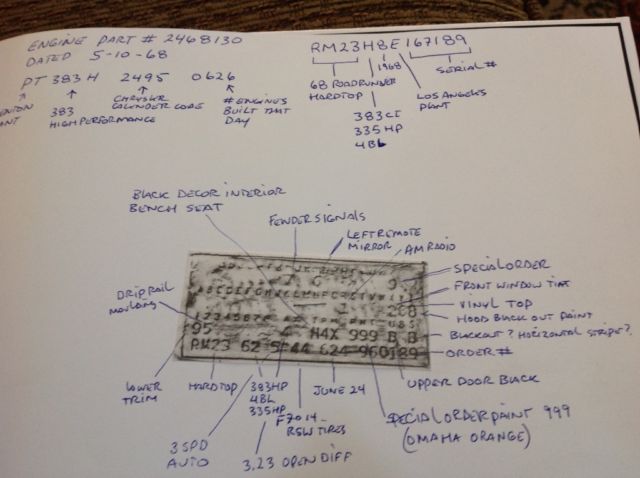 ENGINE PART # 2468130
DATED 5-10-68
PT 383 H 2495 0626
383
HIGH PERFORMANCE
CHRYSLER
CALENDER CODE
# ENGINES
BUILT THAT
DAY
RM23H8E167189
68 ROADRUNNER
HARDTOP
1968
383 CI
335 HP
4BL
LOS ANGELES
PLANT
SERIAL #
BLACK DECOR INTERIOR
BENCH SEAT
FENDER SIGNALS
LEFT REMOTE
MIRROR
AM RADIO
SPECIAL ORDER
FRONT WINDOW TINT
VINYL TOP
HOOD BLACK OUT PAINT
BLACKOUT? HORIZONTAL STRIPE?
ORDER #
UPPER DOOR BLACK
DRIP RAIL
MOLDING
LOWER
TRIM
95 H4X 999 B B
RM23 62 5 44 624 960189
HARDTOP
383HP
4BL
335HP
JUNE 24
F70 14
RSW TIRES
SPECIAL ORDER PAINT 999
(OMAHA ORANGE)
3 SPD
AUTO
3.23 OPEN DIFF